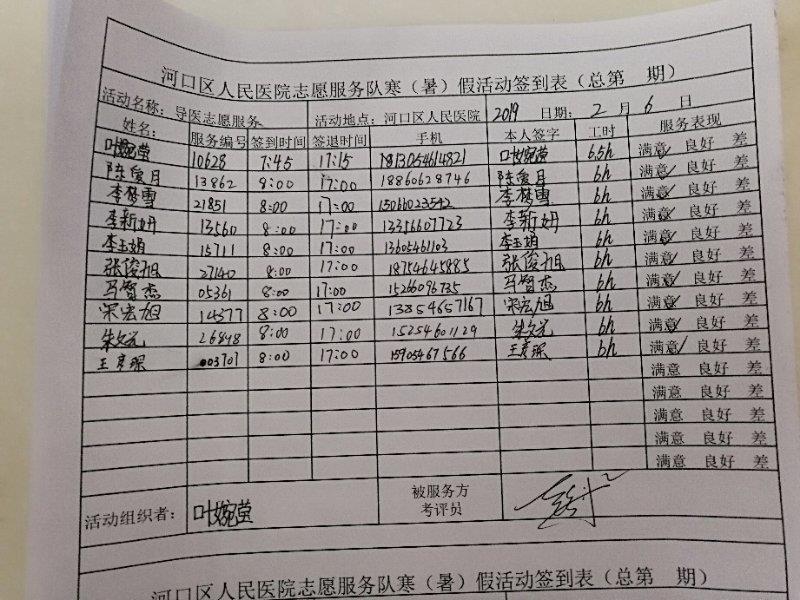 河口区人民医院志愿服务队寒（暑）假活动签到表（总第 期）
活动名称：导医志愿服务 活动地点：河口区人民医院 2019 日期：2 月 6 日
姓名： 服务编号 签到时间 签退时间 手机 本人签字 工时 服务表现
叶婉莹 10628 7:45 17:15 叶婉莹 6.5h 满意 良好 差
陈爱月 13862 8:00 17:00 18860628746 陈爱月 6h 满意 良好 差
李梦雪 21851 8:00 17:00 15066023542 李梦雪 6h 满意 良好 差
李新妍 13560 8:00 17:00 13356607723 李新妍 6h 满意 良好 差
李玉娟 15711 8:00 17:00 13605461103 李玉娟 6h 满意 良好 差
张俊旭 27140 8:00 17:00 18754645885 张俊旭 6h 满意 良好 差
马智杰 05361 8:00 17:00 15266096735 马智杰 6h 满意 良好 差
宋宏旭 14377 8:00 17:00 13854657167 宋宏旭 6h 满意 良好 差
朱文元 26898 8:00 17:00 15254601129 朱文元 6h 满意 良好 差
王彦琛 003701 8:00 17:00 15905467566 王彦琛 6h 满意 良好 差
满意 良好 差
满意 良好 差
满意 良好 差
满意 良好 差
满意 良好 差
活动组织者： 叶婉莹 被服务方
考评员
河口区人民医院志愿服务队寒（暑）假活动签到表（总第 期）